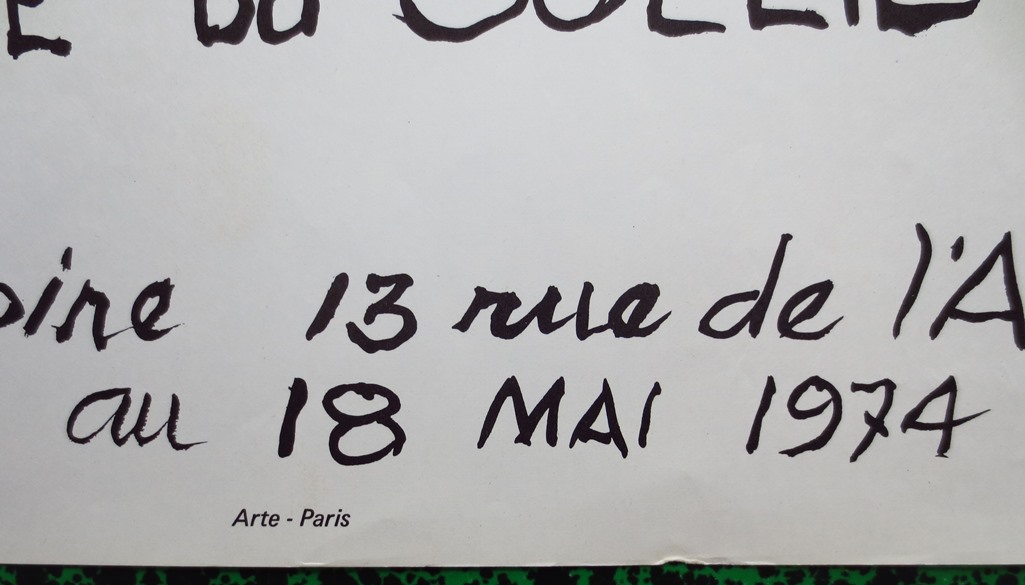 DU SOLEIL
13 rue de l'A
au 18 MAI 1974
Arte - Paris